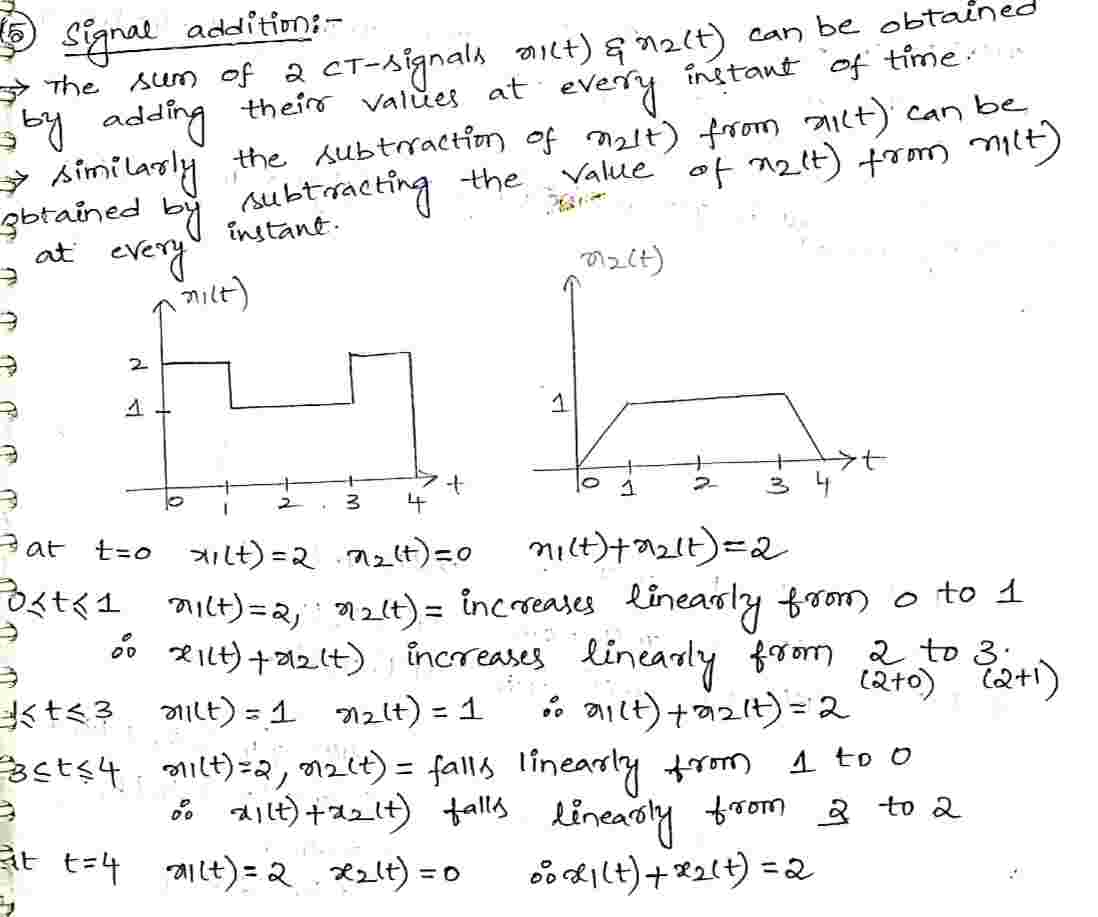 (5) Signal addition:-
→ The sum of 2 CT-signals x1(t) & x2(t) can be obtained
by adding their values at every instant of time.
→ similarly the subtraction of x2(t) from x1(t) can be
obtained by subtracting the value of x2(t) from x1(t)
at every instant.
x1(t)
2
1
0 1 2 3 4 t
x2(t)
1
0 1 2 3 4 t
at t=0 x1(t)=2 x2(t)=0 x1(t)+x2(t)=2
0≤t≤1 x1(t)=2, x2(t)= increases linearly from 0 to 1
∴ x1(t)+x2(t) increases linearly from 2 to 3.
(2+0) (2+1)
1≤t≤3 x1(t)=1 x2(t)=1 ∴ x1(t)+x2(t)=2
3≤t≤4 x1(t)=2, x2(t)= falls linearly from 1 to 0
∴ x1(t)+x2(t) falls linearly from 3 to 2
at t=4 x1(t)=2 x2(t)=0 ∴ x1(t)+x2(t)=2